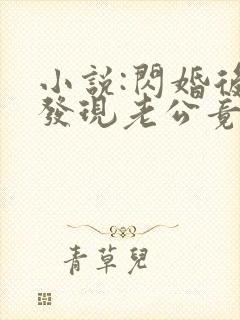 小說:閃婚後
發現老公竟
青草兒